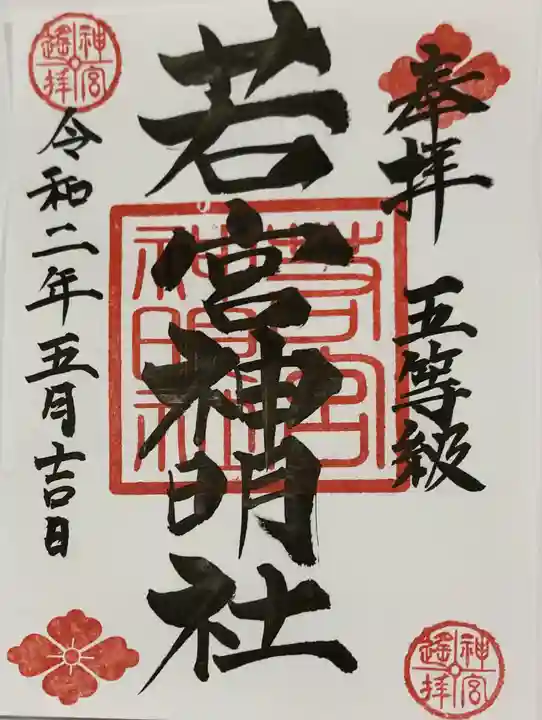 奉拝 五等級
若宮神明社
若宮
神明社
令和二年五月吉日
神宮
遙拝
神宮
遙拝